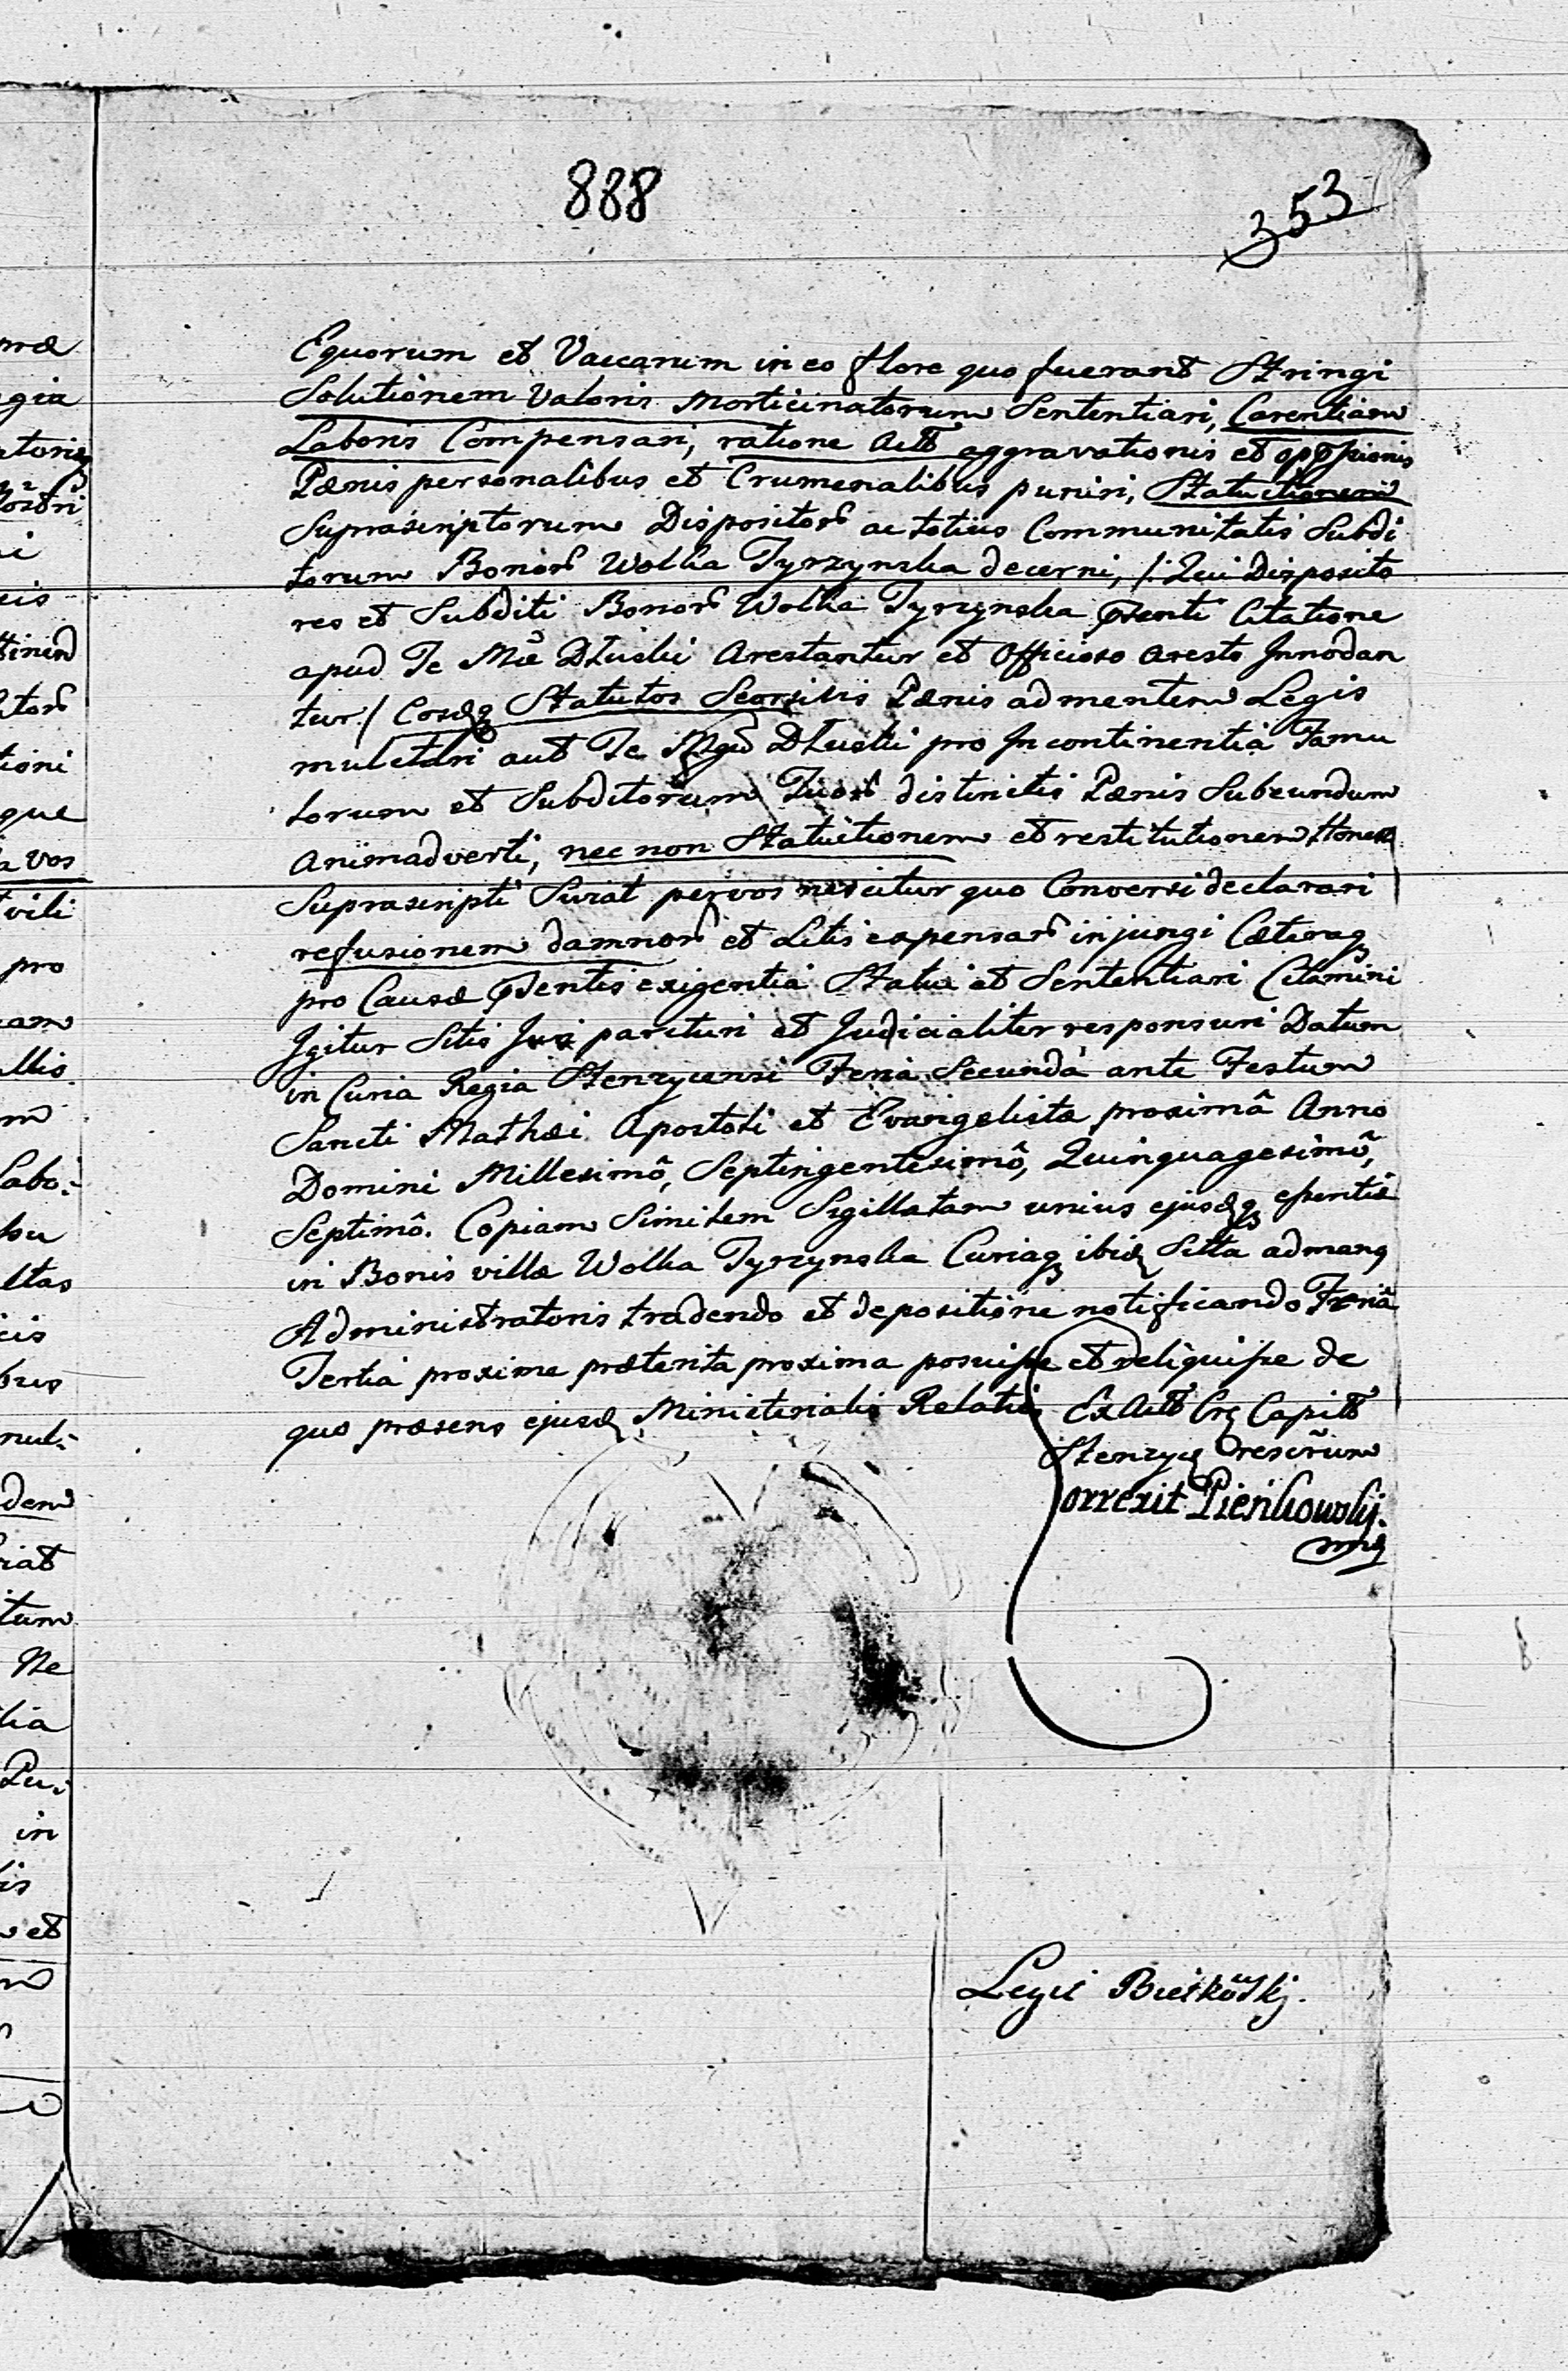 888
353
Equorum et Vaccarum in eo flore quo fuerant Stringi
Solutionem Valoris Morticinatorum Sententiari, Carentiam
Laboris Compensari, ratione actt aggravationis et oppssionis
Pænis personalibus et Crumenalibus puniri, Statuitionem
Suprascriptorum Dispositor ac totius Communitatis Subdi
torum Bonor Wolka Tyrzynska decerni, /: Qui Disposito
res et Subditi Bonor Wolka Tyrzynska pæsenti Citatione
apud Te Mæ Dłuski Arestantur et Officioso aresto Innodan
tur / Eosdq Statutos Seorsivis Pænis ad mentem Legis
mulctari aut Te Mgd Dłuski pro Incontinentia Famu
lorum et Subditorum Tuor distinctis Pænis Subeundum
Animadverti, nec non Statuitionem et restitutionem Hones
Suprascripti Surat per vos nescitur quo Conversi declarari
refusionem damnor et Litis expensar injungi Cæteraq
pro Causæ psentis exigentia Statui et Sententiari Citamini
Igitur Sitis Juri parituri et Judicialiter responsuri Datum
in Curia Regia Stenzycensi Feria Secunda ante Festum
Sancti Mathæi Apostoli et Evangelistæ proximâ Anno
Domini Millesimô, Septingentesimô, Quinquagesimô,
Septimô. Copiam Similem Sigillatam unius ejusdq essentiæ
in Bonis villæ Wolka Tyrzynska Curiaq ibid Sitta ad manq
Administratoris tradendo et depositione notificando Feria
Tertia proxime præterita proxima posuisse et reliquisse de
quo præsens ejusd Ministerialis Relatio
Ex Actt Crq Capitt
Stenzyc Orescrum
Correxit Pieńkowskj.
mp
Legit Bieńkowskj.